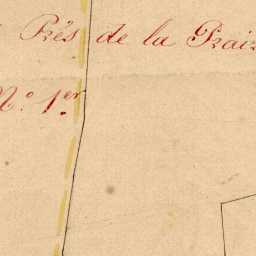 Prés de la Prair
N.º 1.er